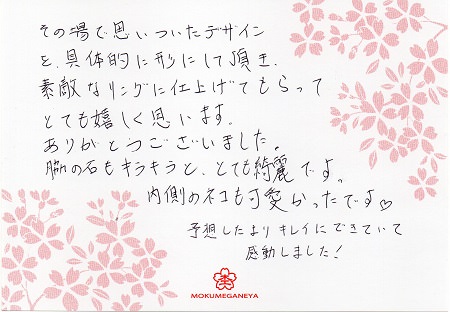 その場で思いついたデザイン
を、具体的に形にして頂き、
素敵なリングに仕上げてもらって
とても嬉しく思います。
ありがとうございました。
脇の石もキラキラと、とても綺麗です。
内側のネコも可愛かったです♡
予想したよりキレイにできていて
感動しました!
MOKUMEGANEYA